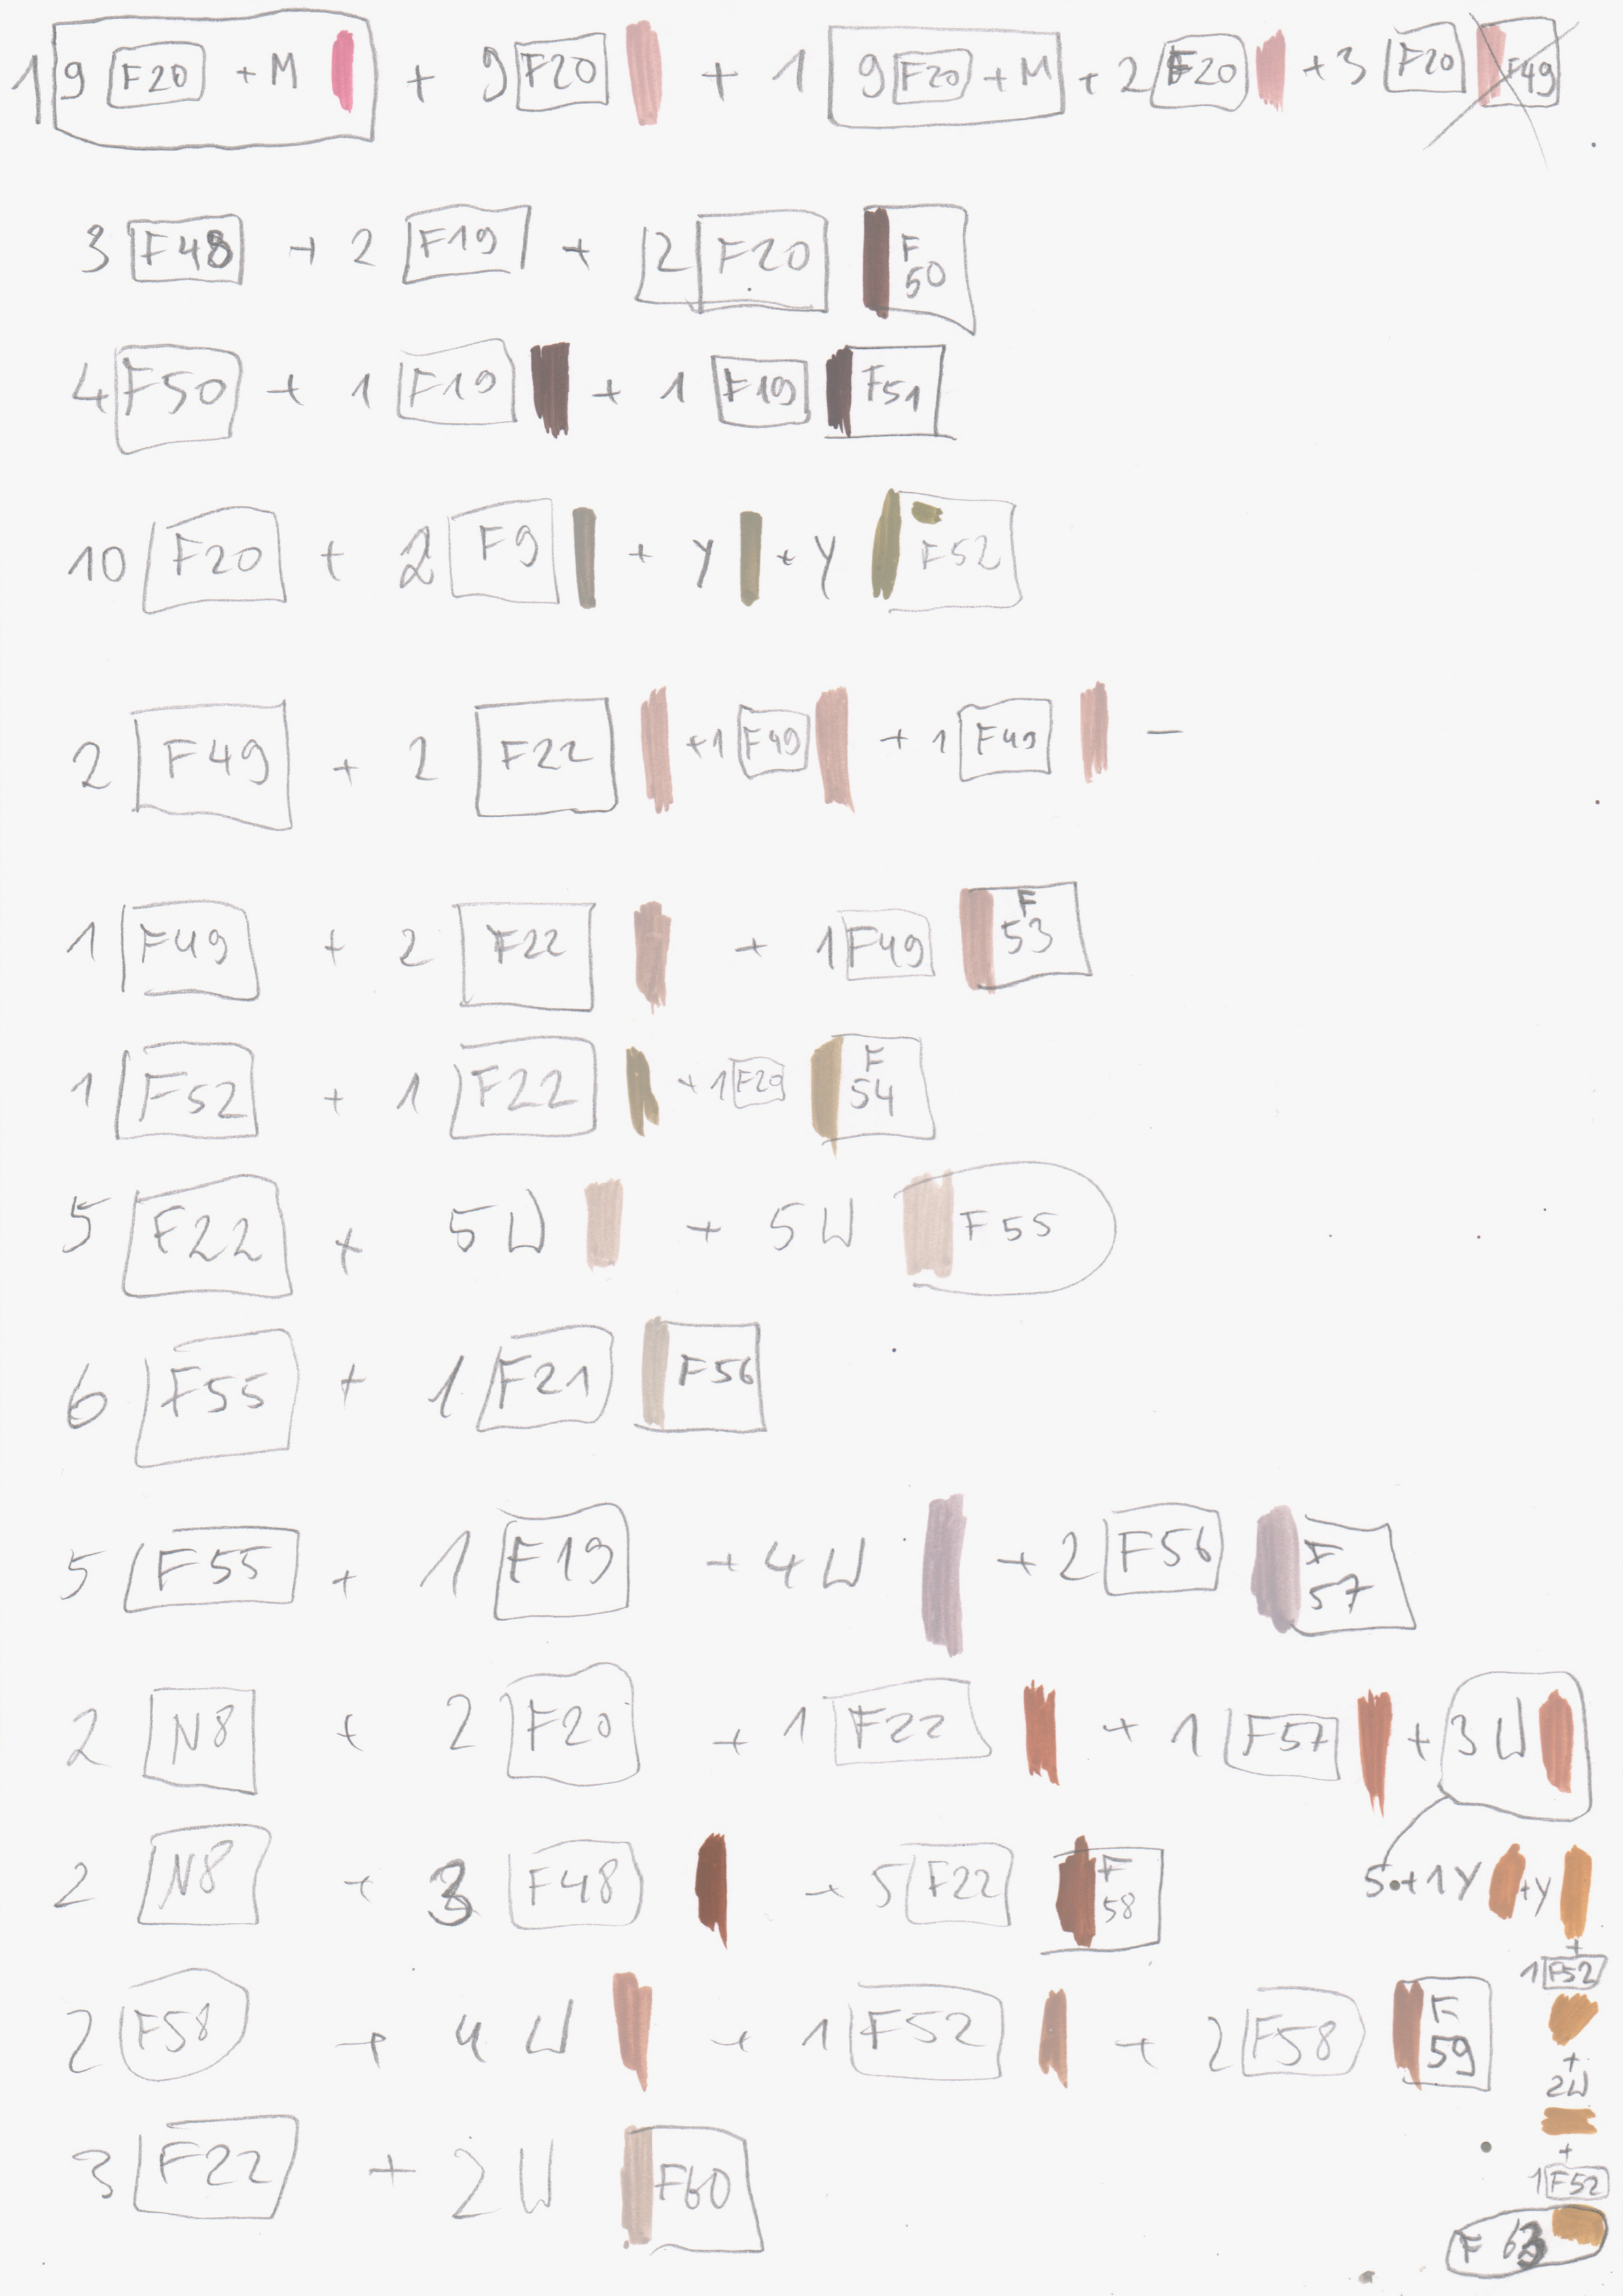 1 9 F20 + M + 9 F20 + 1 9 F20 + M + 2 F20 + 3 F20 F49
3 F48 + 2 F19 + 2 F20 F 50
4 F50 + 1 F19 + 1 F19 F51
10 F20 + 2 F9 + Y + Y F52
2 F49 + 2 F22 +1 F49 + 1 F49 –
1 F49 + 2 F22 + 1 F49 F 53
1 F52 + 1 F22 + 1 F20 F 54
5 F22 + 5W + 5W F55
6 F55 + 1 F21 F56
5 F55 + 1 F19 + 4W + 2 F56 F 57
2 N8 + 2 F20 + 1 F22 + 1 F57 + 3W
2 N8 + 3 F48 + 5 F22 F 58
5 + 1Y + Y
+
1 F52
+
2W
+
1 F52
F 63
2 F58 + 4 W + 1 F52 + 2 F58 F 59
3 F22 + 2W F60